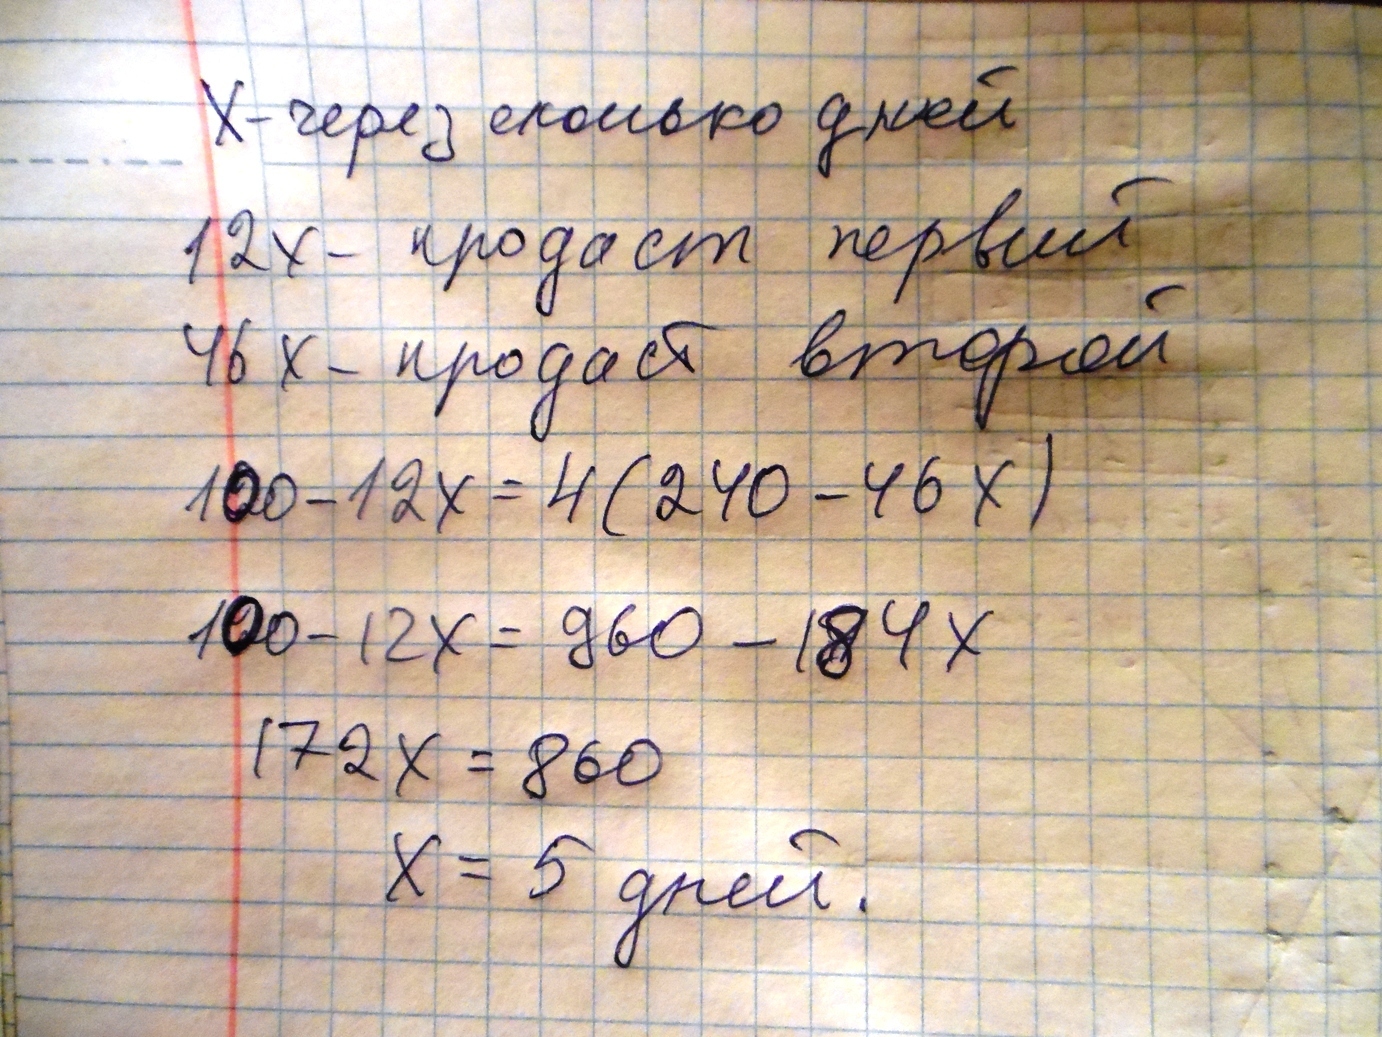 X - через сколько дней
12x - продаст первый
46x - продаст второй
100 - 12x = 4(240 - 46x)
100 - 12x = 960 - 184x
172x = 860
X = 5 дней.